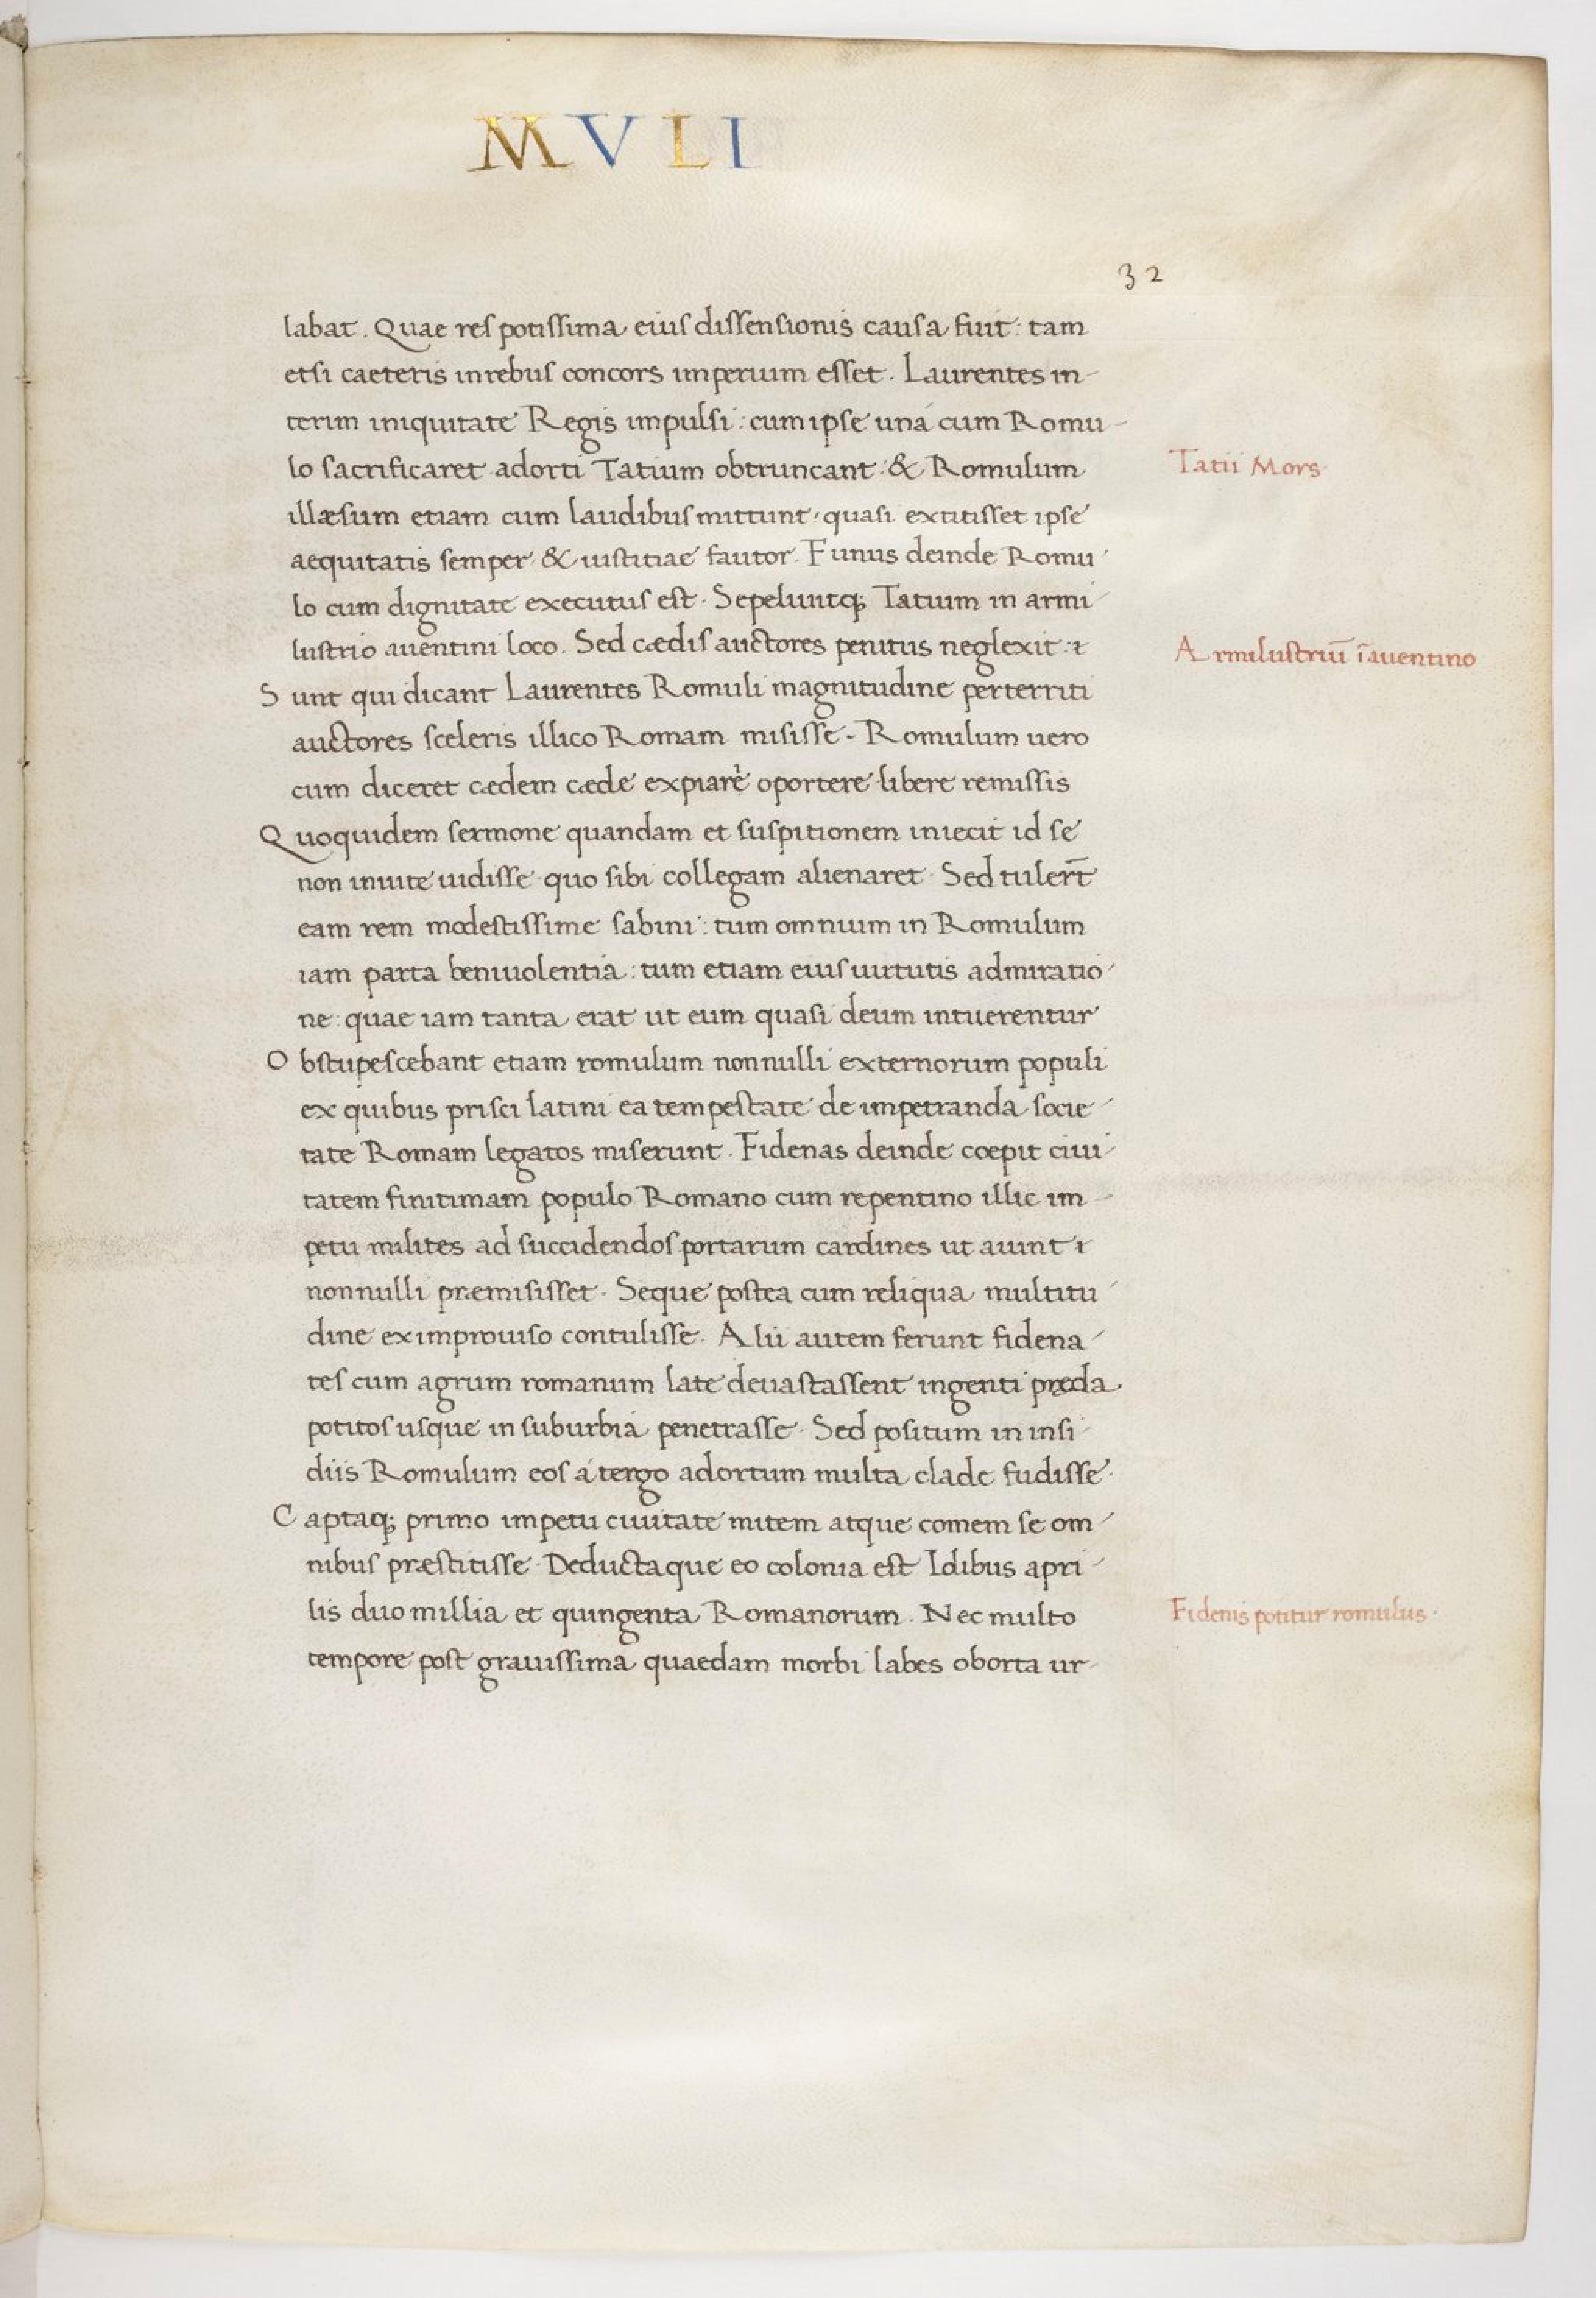 MVLI
32
labat. Quae res potissima eius dissensionis causa fuit: tam
etsi caeteris in rebus concors imperium esset. Laurentes in-
terim iniquitate Regis impulsi: cum ipse uná cum Romu-
lo sacrificaret adorti Tatium obtruncant: & Romulum
Tatii Mors
illæsum etiam cum laudibus mittunt, quasi extitisset ipse
aequitatis semper & iustitiae fautor. Funus deinde Romu-
lo cum dignitate executus est. Sepeliuntq; Tatium in armi-
lustrio auentini loco. Sed cædis auctores penitus neglexit:
Armilustriū ī auentino
Sunt qui dicant Laurentes Romuli magnitudine perterriti
auctores sceleris illico Romam misisse. Romulum uero
cum diceret cædem cæde expiare oportere libere remissis
Quoquidem sermone quandam et suspitionem iniecit id se
non inuite uidisse quo sibi collegam alienaret. Sed tulert̄
eam rem modestissime sabini: tum omnium in Romulum
iam parta beniuolentia: tum etiam eius uirtutis admiratio-
ne: quae iam tanta erat ut eum quasi deum intuerentur
Obstupescebant etiam romulum nonnulli externorum populi
ex quibus prisci latini ea tempestate de impetranda socie-
tate Romam legatos miserunt. Fidenas deinde coepit ciui-
tatem finitimam populo Romano cum repentino illic im-
petu milites ad succidendos portarum cardines ut aiunt
nonnulli præmisisset. Seque postea cum reliqua multitu-
dine ex improuiso contulisse. Alii autem ferunt fidena-
tes cum agrum romanum late deuastassent ingenti præda
potitos usque in suburbia penetrasse. Sed positum in insi-
diis Romulum eos á tergo adortum multa clade fudisse.
Captaq; primo impetu ciuitate mitem atque comem se om-
nibus præstitisse. Deductaque eo colonia est Idibus apri-
lis duo millia et quingenta Romanorum. Nec multo
Fidenis potitur romulus.
tempore post grauissima quaedam morbi labes oborta ur-